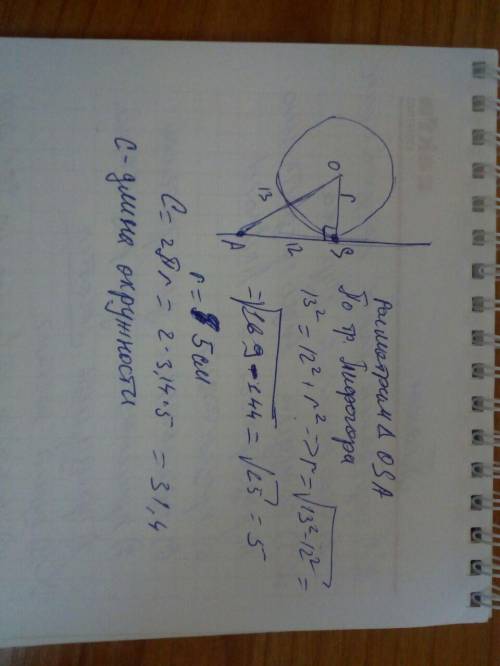 Рассмотрим Δ OBA
По тр Пифагора
13² = 12² + r² => r = √13² - 12² =
= √169 - 144 = √25 = 5
r = 5 см
C = 2πr = 2 · 3,14 · 5 = 31,4
C - длина окружности
O
r
13
12
A
B